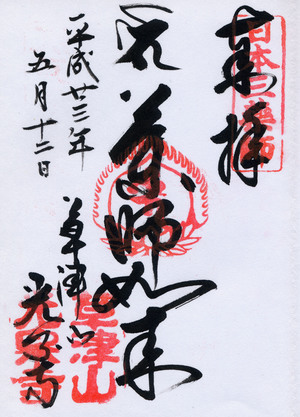 奉拝
日本三薬師
薬師如来
平成廿三年
五月十二日
草津山
光泉寺
草津山
光泉寺